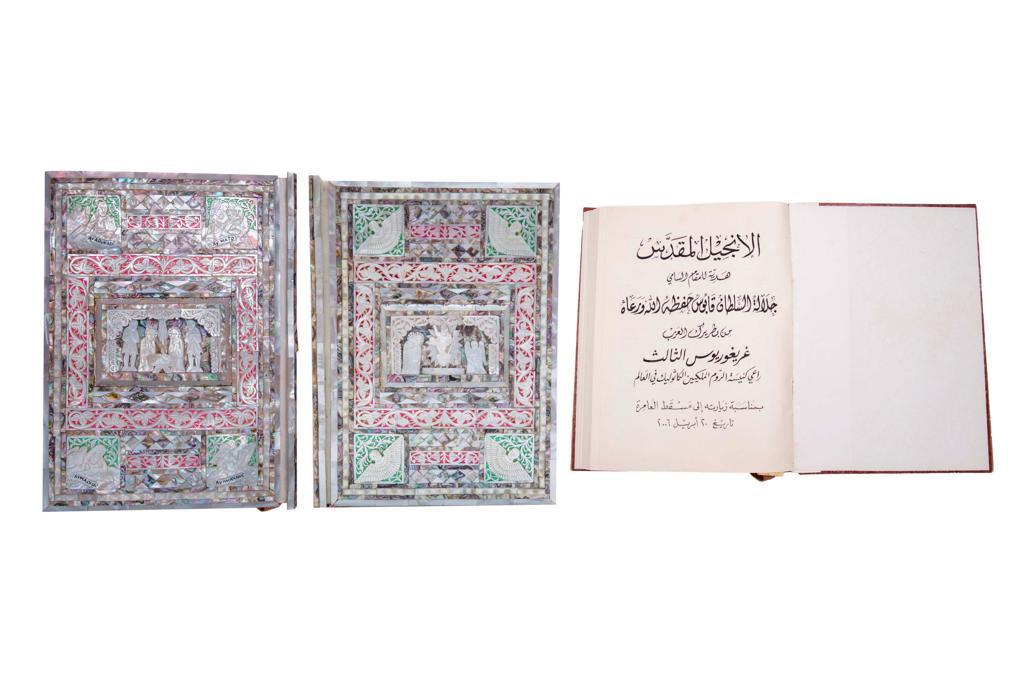 الإنجيل المقدّس
هدية للمقام السامي
جلالة السلطان قابوس حفظه الله ورعاه
من بطريرك العرب
غريغوريوس الثالث
راعي كنيسة الروم الملكيين الكاثوليك في العالم
بمناسبة زيارته إلى مسقط العامرة
تاريخ ٢٠ أبريل ٢٠٠٦